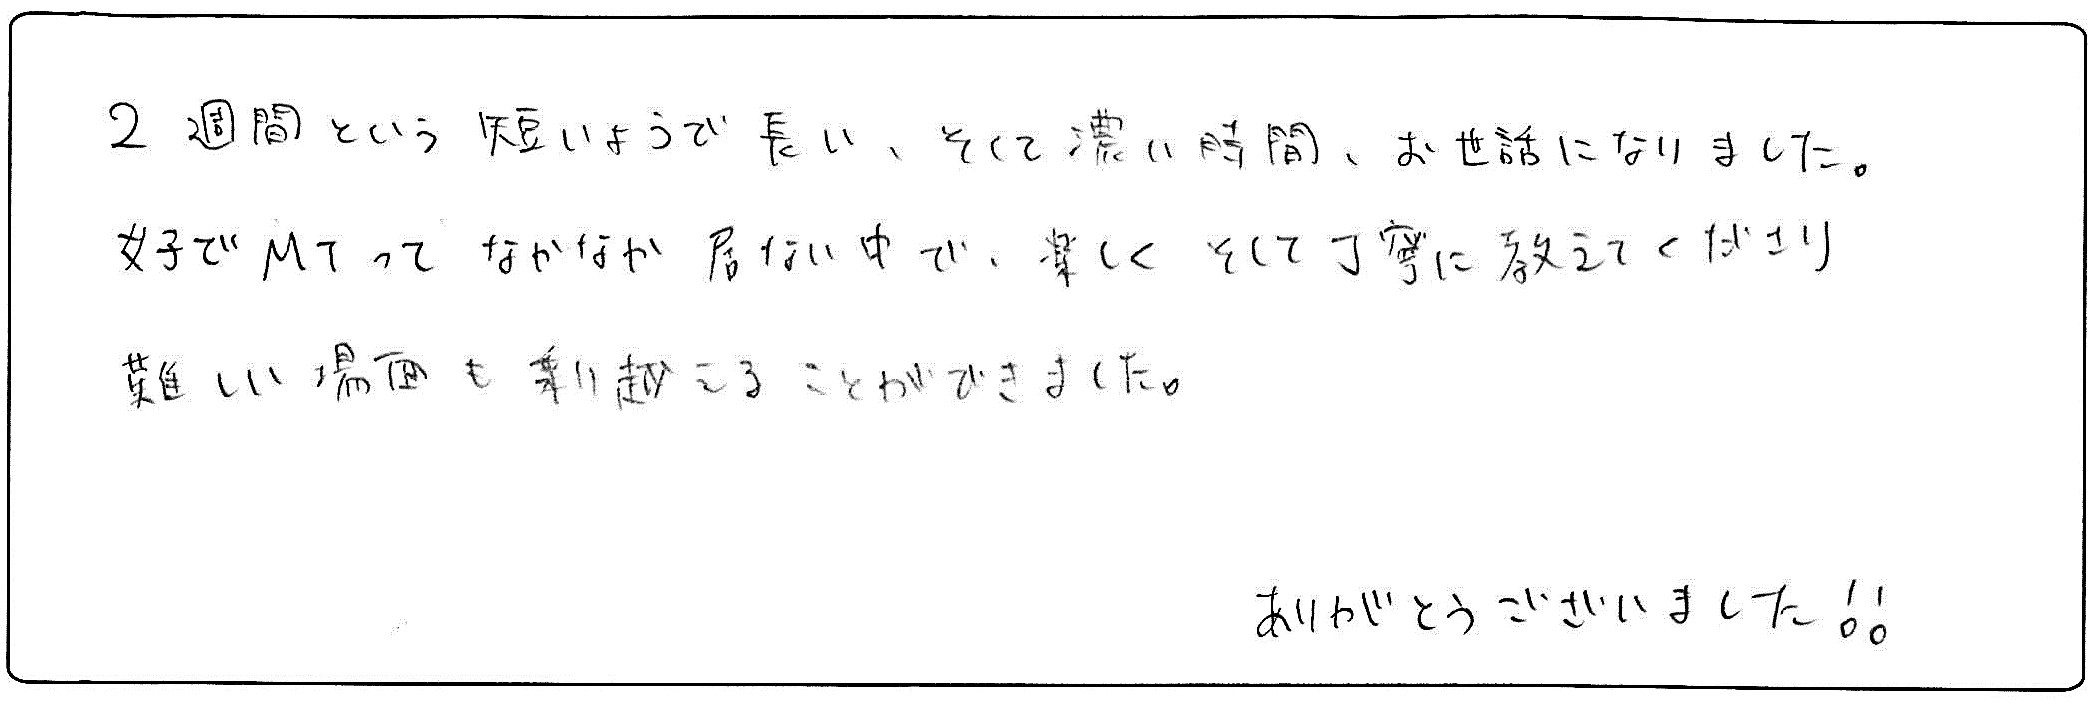 2週間という短いようで長い、そして濃い時間、お世話になりました。
女子でMTってなかなか居ない中で、楽しくそして丁寧に教えてくださり
難しい場面も乗り越えることができました。
ありがとうございました!!